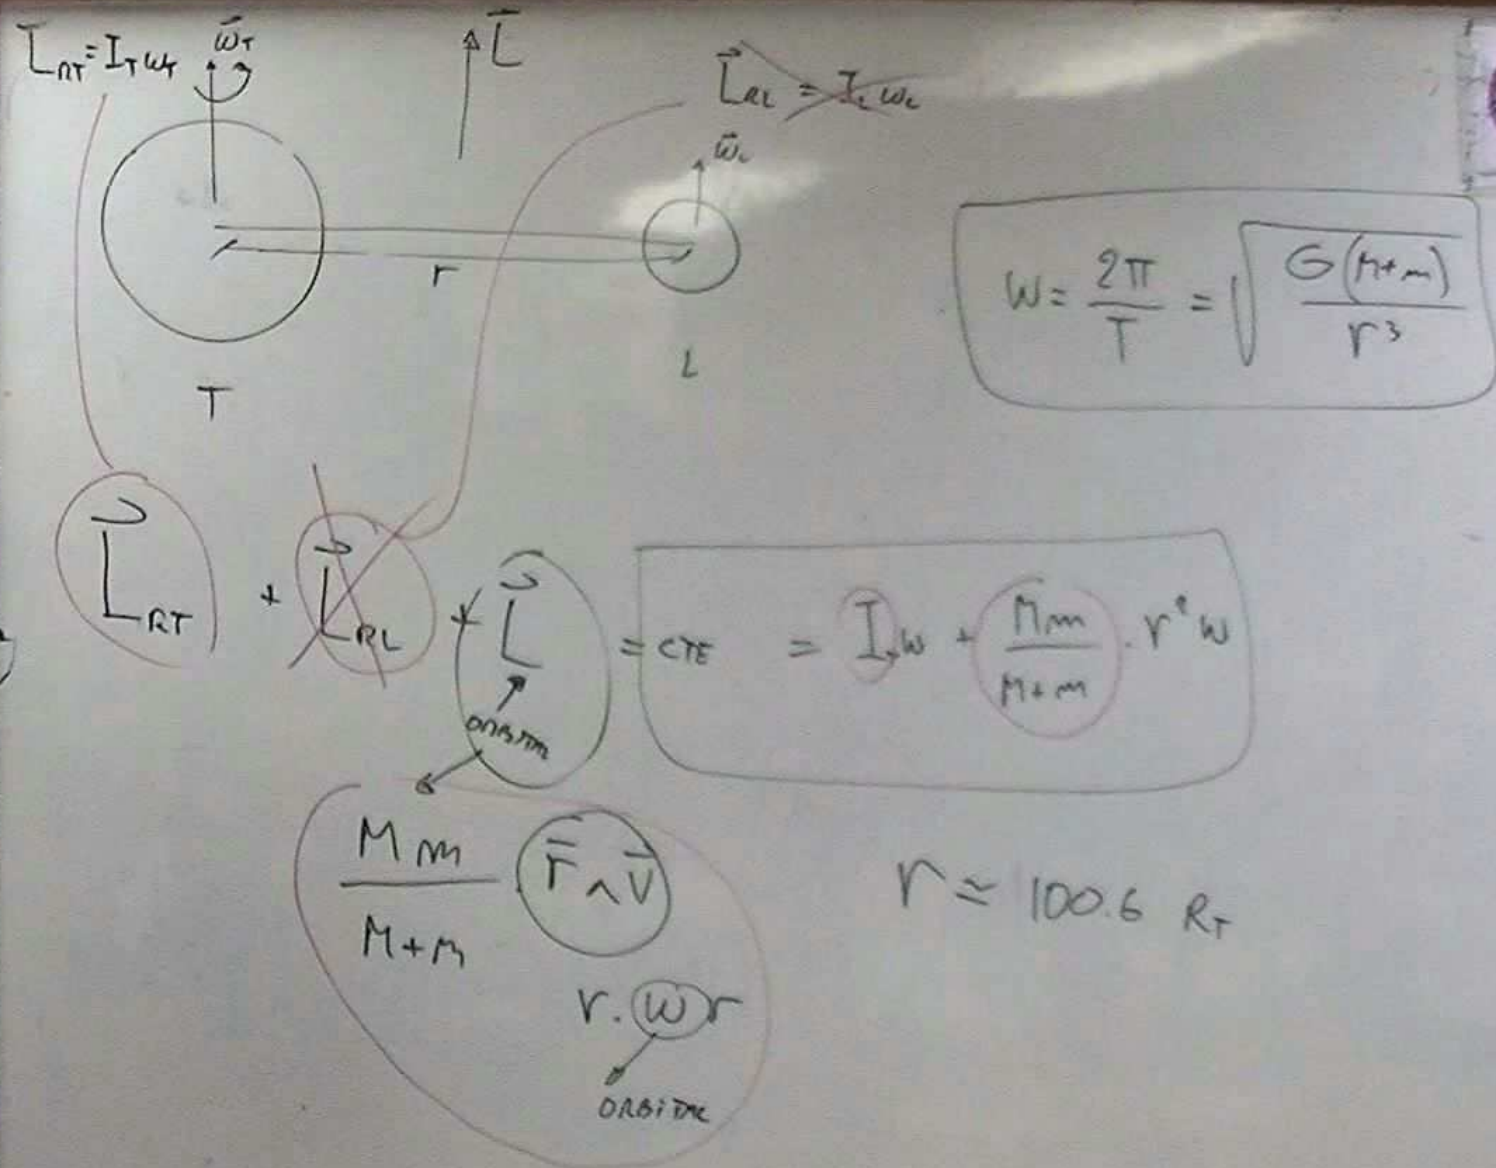 L⃗_RT = I_T ω_T
ω⃗_T
L⃗
L⃗_RL = I_L ω_L
ω⃗_L
r
T
L
W = 2π/T = √(G(M+m)/r³)
L⃗_RT + L⃗_RL + L⃗ = CTE = I_T ω + Mm/(M+m) · r² ω
ORBITAL
Mm/(M+m) · r̄ ∧ v̄
r ≃ 100.6 R_T
r. ω r
ORBITAL